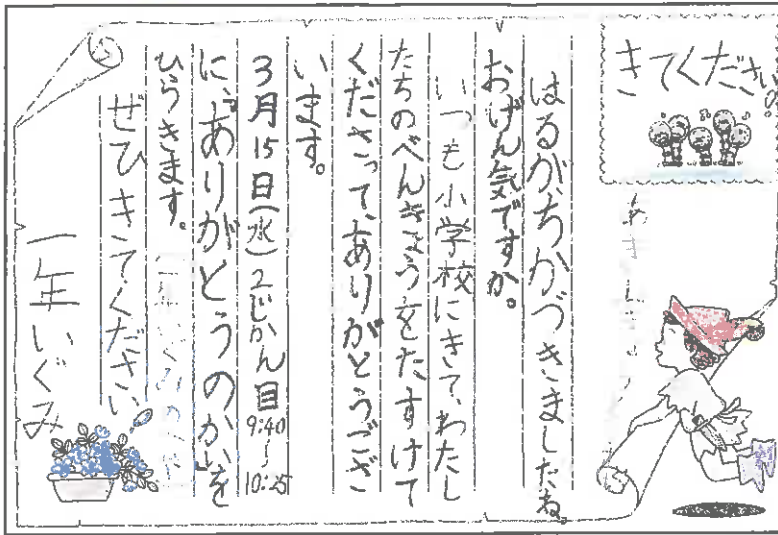 きてください。
はるがちかづきましたね。
おげん気ですか。
いつも小学校にきて、わたし
たちのべんきょうをたすけて
くださって、ありがとうござ
います。
3月15日(水)2じかん目9:40~10:25
に、「ありがとうのかい」を
ひらきます。
ぜひきてください。
一年いぐみ